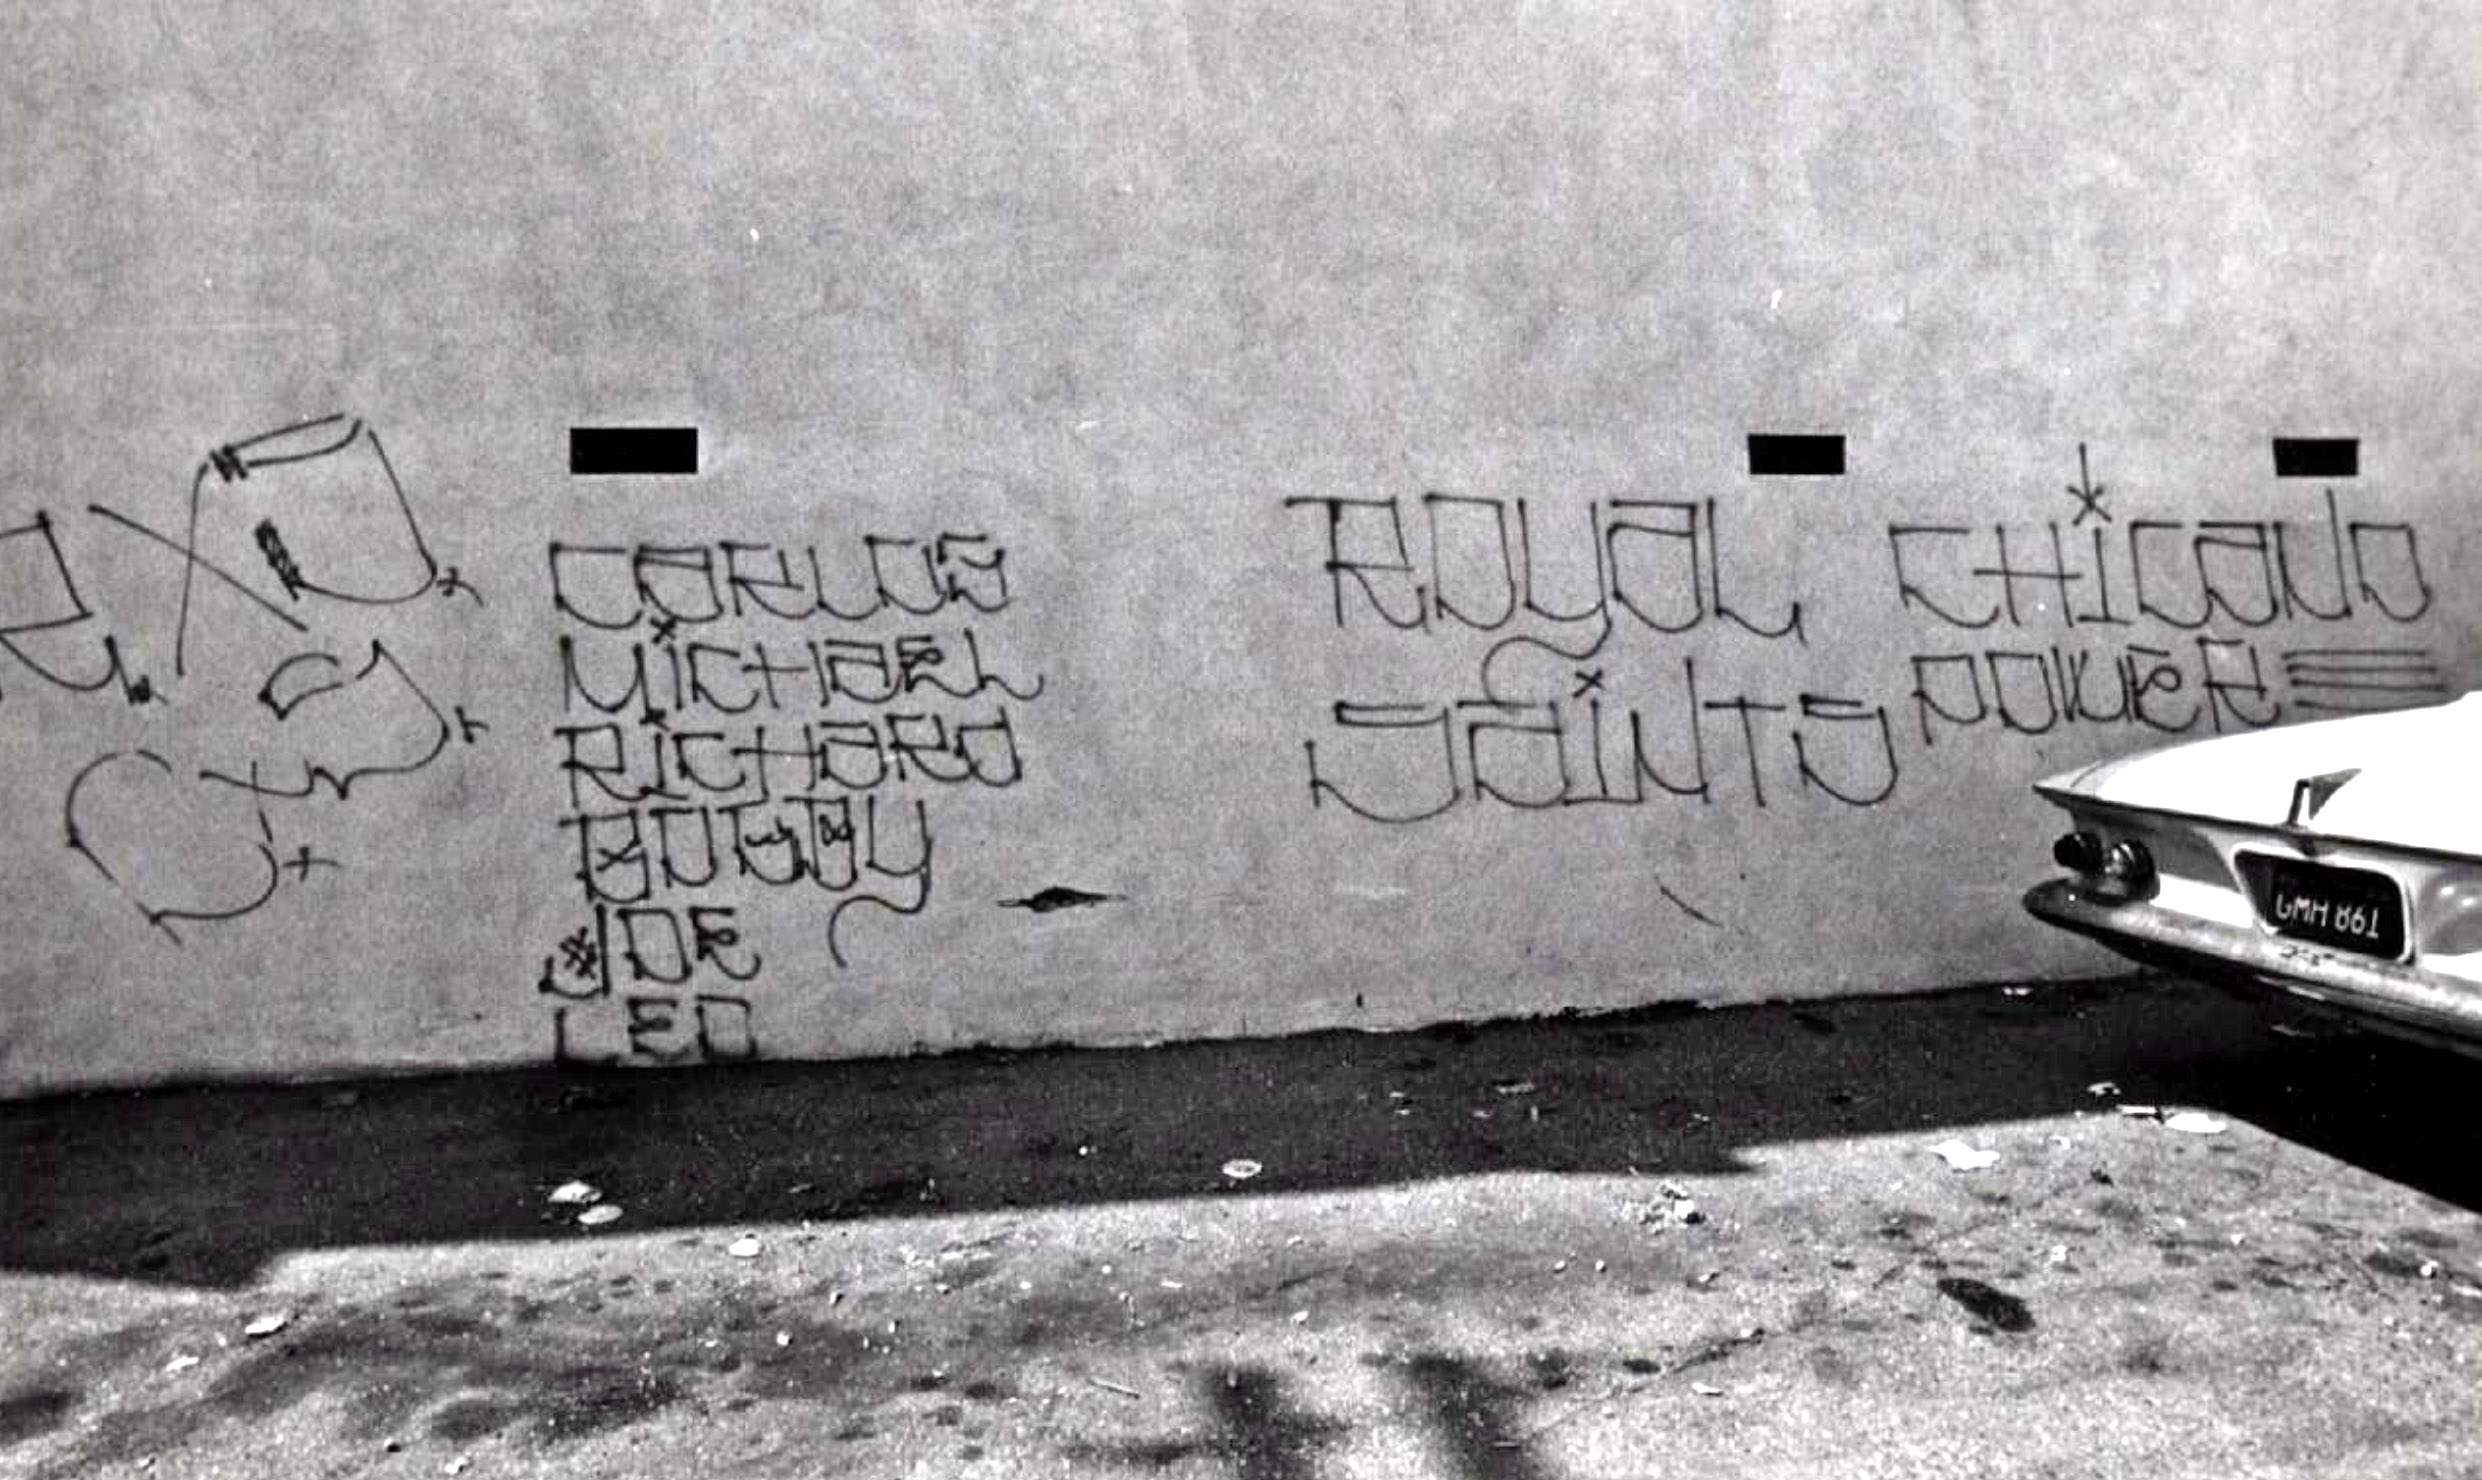 CARLOS
MiCHAEL
RiCHARD
BOBBY
JOE
LEO
ROYAL
SAiNTS
CHiCANO
POWER